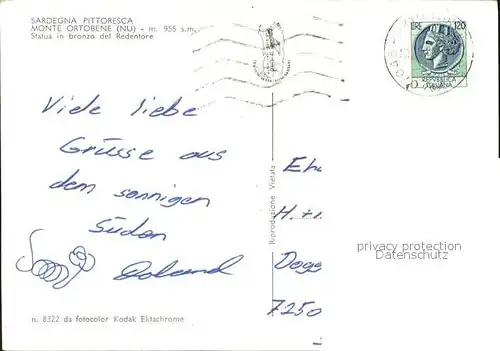 SARDEGNA PITTORESCA
MONTE ORTOBENE (NU) - m. 955 s.m.
Statua in bronzo del Redentore
LIRE 120
REPUBBLICA
ITALIANA
Viele liebe
Grüsse aus
dem sonnigen
Süden
Roland
Riproduzione Vietata
Eh
H.+
Dogg
7250
privacy protection
by oldthing.de
n. 8322 da fotocolor Kodak Ektachrome